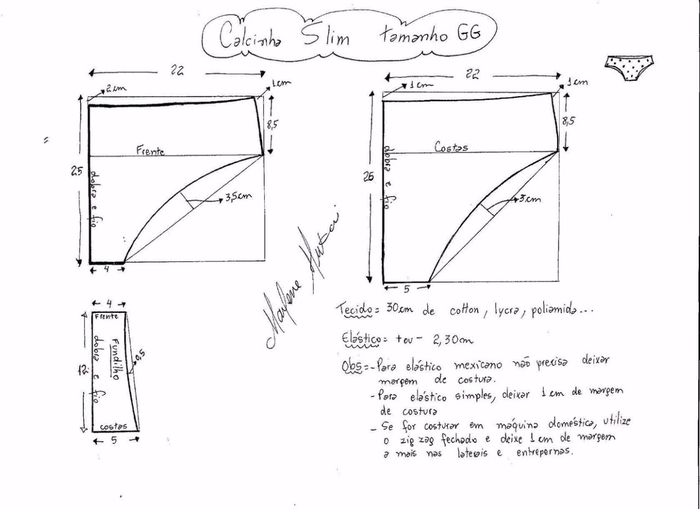 Calcinha Slim tamanho GG
22
2 cm
1 cm
8,5
Frente
25
dobra e fio
3,5 cm
4
22
1 cm
1 cm
8,5
Costas
26
dobra e fio
3 cm
5
Marlene Mukai
4
Frente
Fundilho
dobra e fio
0,5
12
costas
5
Tecido = 30 cm de cotton, lycra, poliamida...
Elástico = + ou - 2,30 m
Obs = - Para elástico mexicano não precisa deixar
margem de costura.
- Para elástico simples, deixar 1 cm de margem
de costura
- Se for costurar em máquina doméstica, utilize
o zig zag fechado e deixe 1 cm de margem
a mais nas laterais e entrepernas.